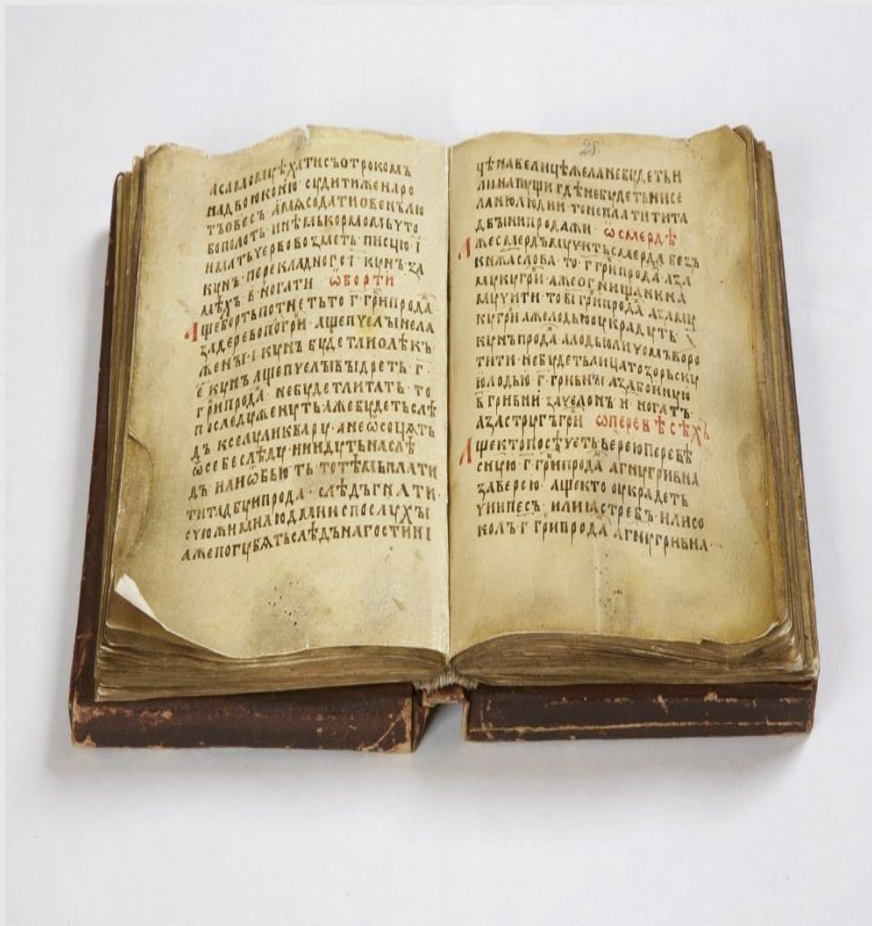 а самому ѣхати съ отрокомъ
на двою коню сути же на ро
тъ овесъ а мѧсо дати овенъ лю
бо полоть инѣмь кормомь что
има чьрево возметь писцю і
кунъ перекладного і кунъ за
мѣхъ в ногати ѿ борти
Аще борть потнеть то г гри прода
за дерево по гри аще пчелы нела
жены і кунъ будет ли олѣкъ
е кунъ аще пчелы выдреть г
гри прода не будет ли тать то
по следу женуть аже будеть слѣ
дъ к селу ли к вару а не ѿсоцѧть
ѿ себе слѣду ни идуть на слѣ
дъ или ѿбьють тъ тѣмь плати
ти татбу и прода слѣдъ гнати
с чюжими людми и с послухы
аже погубѧть слѣдъ на гостинѣ
28
цѣ на велицѣ же а села не будеть и
ли на пущи гдѣ не будеть ни се
ла ни людии то не платити та
дьбы ни продажи ѿ смердѣ
Аже смердъ мучить смерда безъ
кнѧжа слова то г гри прода а за
муку гри аже огнищанина
мучити то ві гри прода а за му
ку гри аже лодью оукрадуть
кунъ прода а лодью лицомь воро
тити не будеть лица то за морьскую
лодью г гривны а за набоиную
в гривны за челонъ и ногатъ
а за стругъ гри ѡ перевѣсѣхъ
Аще кто посѣчеть верею перевѣ
сную г гри прода а гну гривна
за верею аще кто оукрадеть
чии песъ или ıастребъ или со
колъ г гри прода а гну гривна